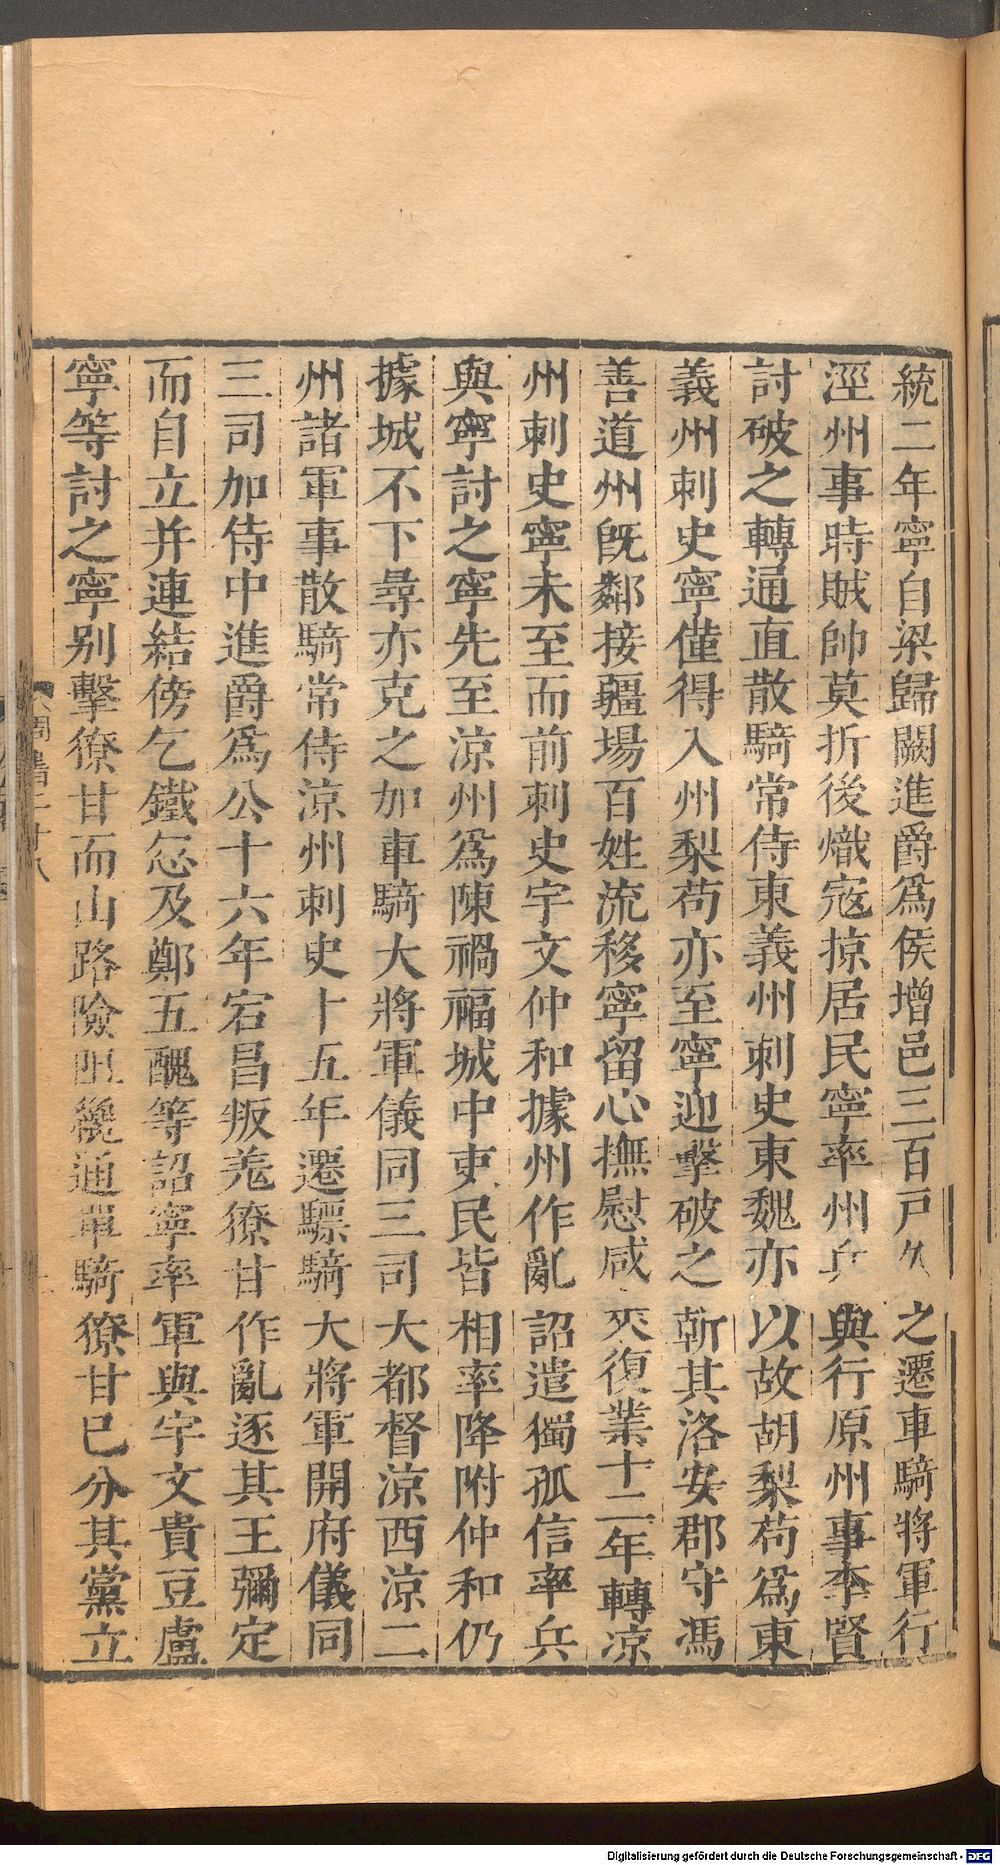 統二年寧自梁歸闕進爵爲侯增邑三百戸久之遷車騎將軍行
涇州事時賊帥莫折後熾寇掠居民寧率州兵與行原州事李賢
討破之轉通直散騎常侍東義州刺史東魏亦以故胡梨苟爲東
義州刺史寧僅得入州梨苟亦至寧迎擊破之斬其洛安郡守馮
善道州旣鄰接疆場百姓流移寧留心撫慰咸來復業十二年轉凉
州刺史寧未至而前刺史宇文仲和據州作亂詔遣獨孤信率兵
與寧討之寧先至涼州爲陳禍福城中吏民皆相率降附仲和仍
據城不下尋亦克之加車騎大將軍儀同三司大都督涼西涼二
州諸軍事散騎常侍涼州刺史十五年遷驃騎大將軍開府儀同
三司加侍中進爵爲公十六年宕昌叛羌獠甘作亂逐其王彌定
而自立并連結傍乞鐵忩及鄭五醜等詔寧率軍與宇文貴豆盧
寧等討之寧别擊獠甘而山路險阻纔通單騎獠甘已分其黨立
周書二十八
Digitalisierung gefördert durch die Deutsche Forschungsgemeinschaft - DFG